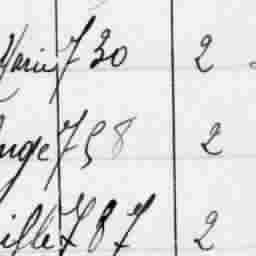 Marie 730 2
ange 758 2
ille 787 2